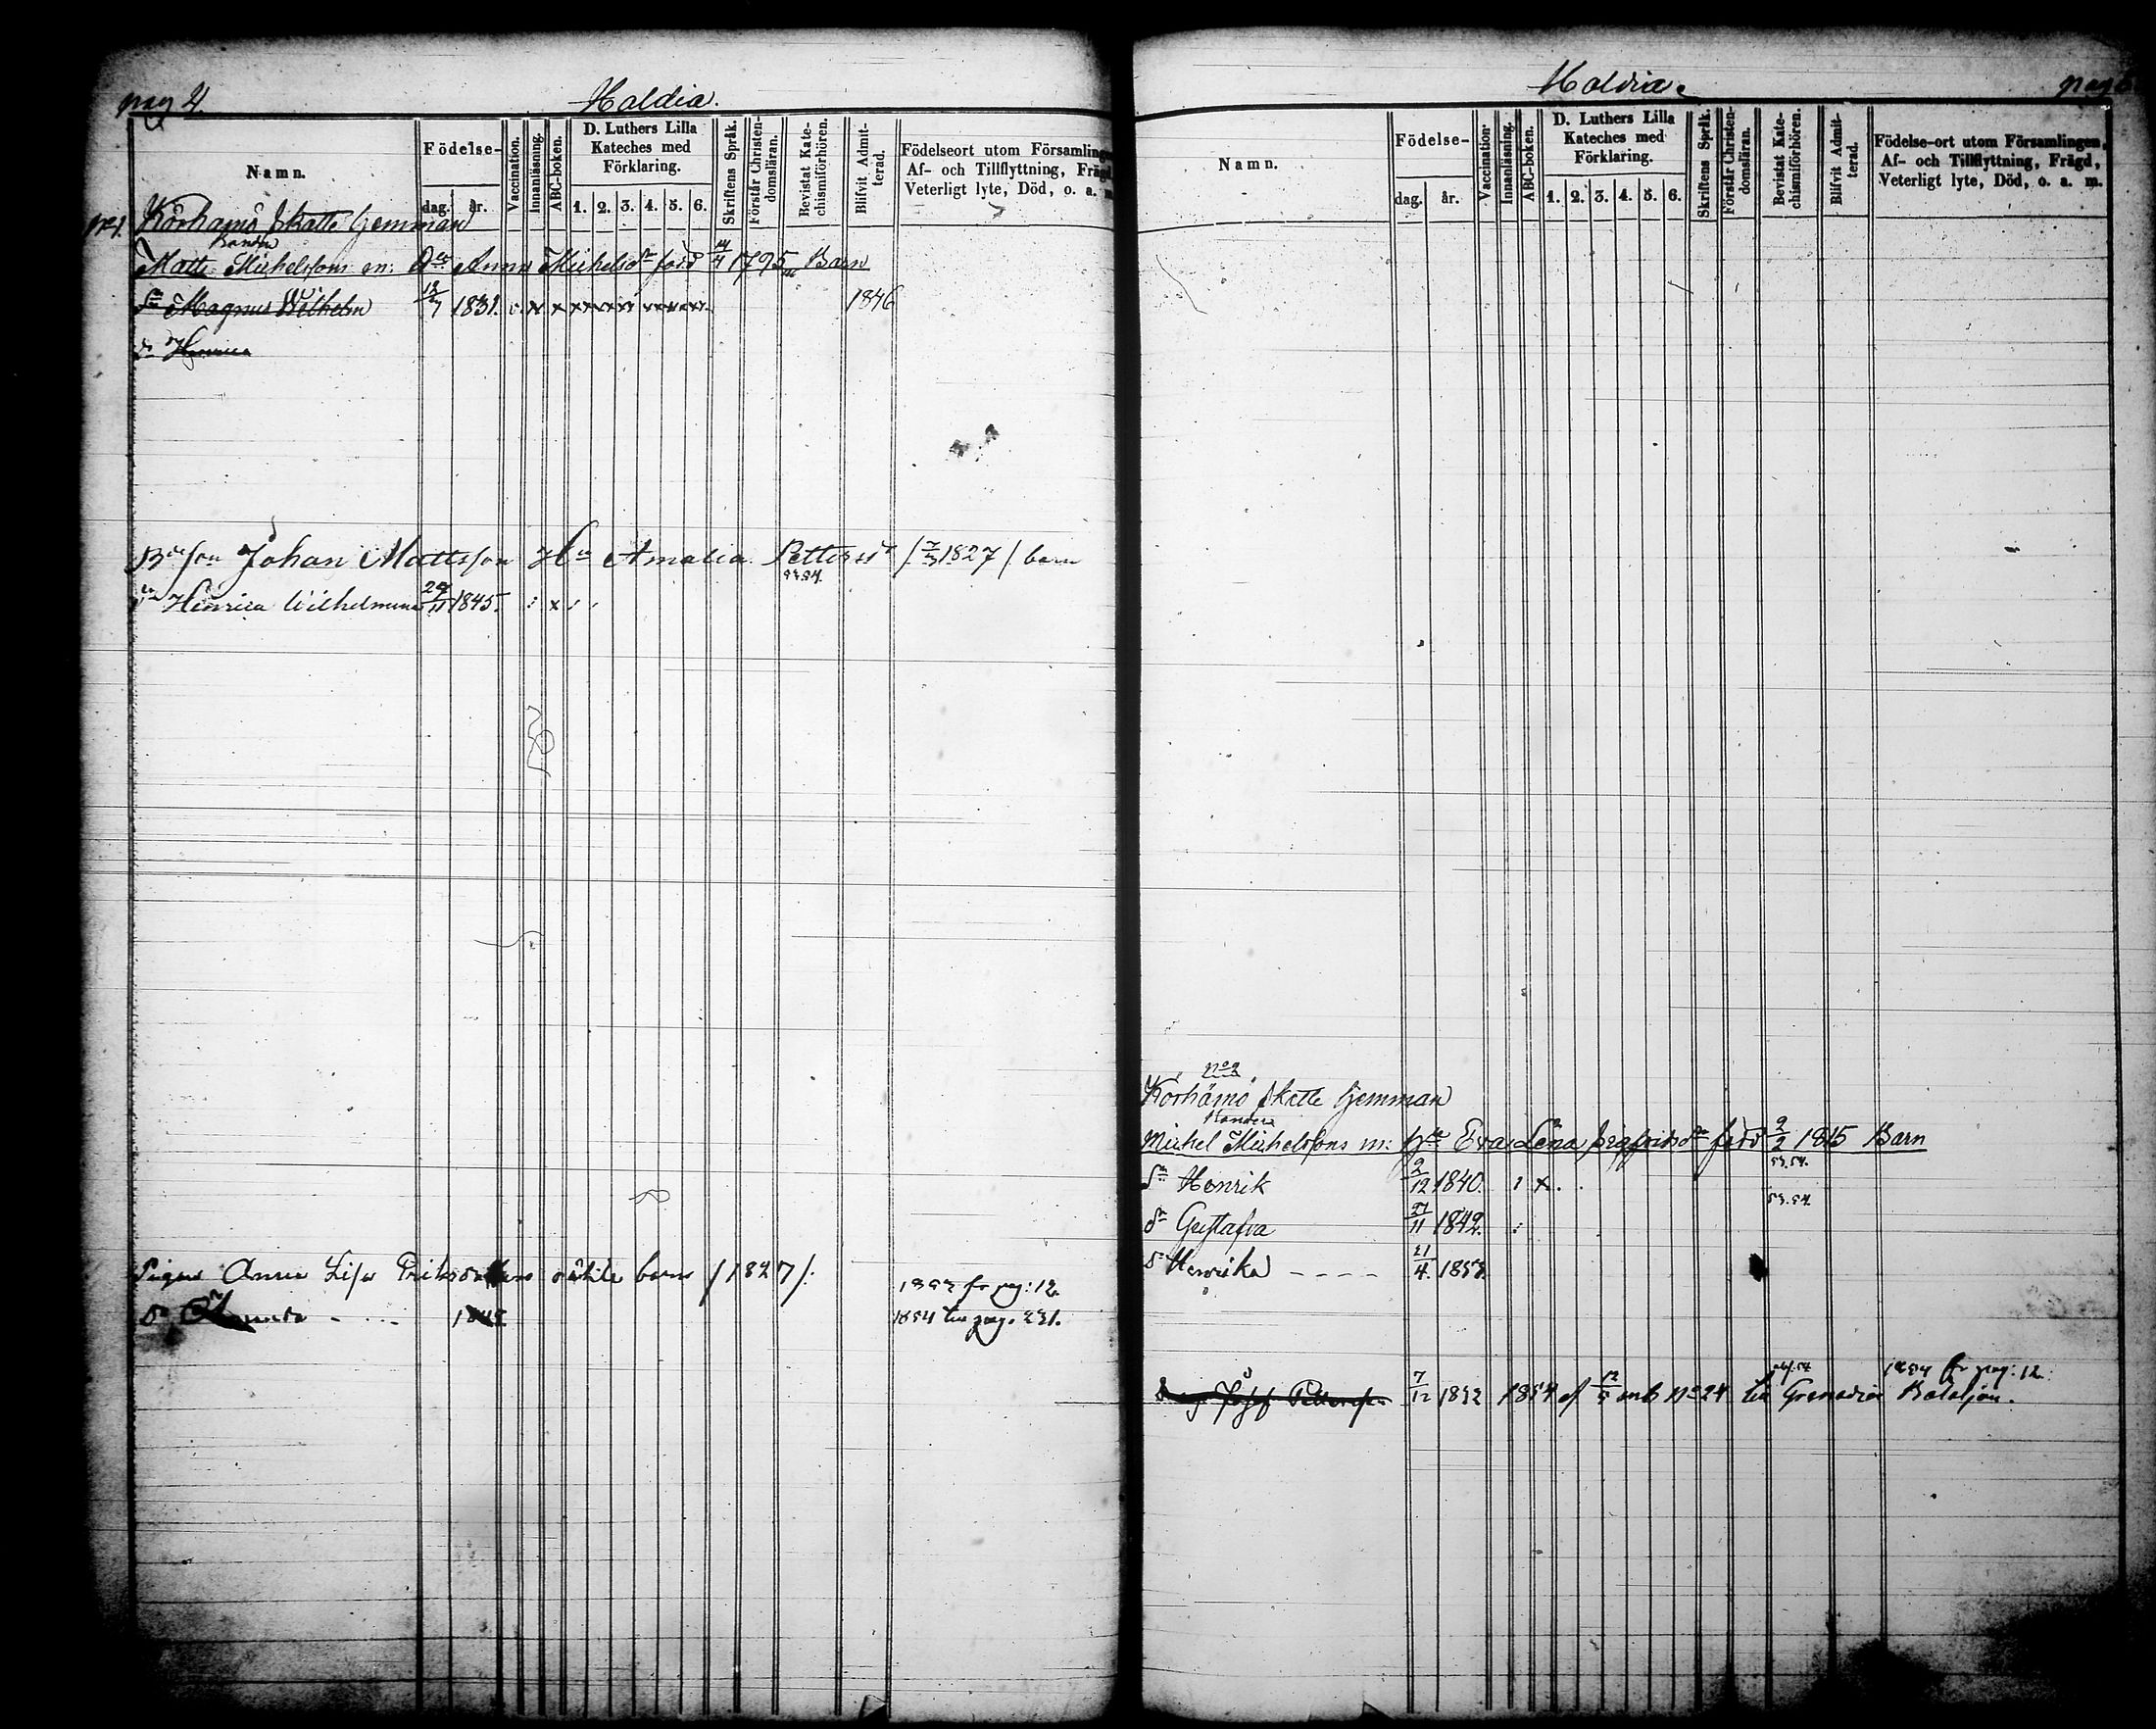 pag 4.
Haldia.
Namn.
Födelse-
dag. år.
Vaccination.
Innanläsning.
ABC-boken.
D. Luthers Lilla Kateches med Förklaring.
1. 2. 3. 4. 5. 6.
Skriftens Språk.
Förstår Christendomsläran.
Bevistat Katechismiförhören.
Blifvit Admitterad.
Födelseort utom Församlingen
Af- och Tillflyttning, Frägd,
Veterligt lyte, Död, o. a. m.
Nr 1. Körhämö Skatte Hemman
Bonden
Matts Michelssons m: Anna Michelsdr född 1795 Barn
Sn Magnus Wilhelm 12/7 1831. 1846
Bdeson Johan Mattsson Hu Amalia Pettersdr /: 7/3 1827 / barn
53.54.
Henrica Wilhelmina 24/11 1845.
Pigan Anna Lisa Eriksdotters oäkta barn / 1827 /:
1853 fr pag: 12.
1854 till pag. 231.
Haldia.
Namn.
Födelse-
dag. år.
Vaccination.
Innanläsning.
ABC-boken.
D. Luthers Lilla Kateches med Förklaring.
1. 2. 3. 4. 5. 6.
Skriftens Språk.
Förstår Christendomsläran.
Bevistat Katechismiförhören.
Blifvit Admitterad.
Födelse-ort utom Församlingen,
Af- och Tillflyttning, Frägd,
Veterligt lyte, Död, o. a. m.
No 2
Körhämö Skatte Hemman
Bonden
Michel Michelssons m: Hu Eva Lena Sigfridsdr född 2/2 1815 Barn
53.54.
Sn Henrik 2/12 1840.
53.54.
Dr Gustafva 27/11 1842.
Dr Henrika - - - - 21/4. 1853.
1854 fr pag: 12.
Josef Pettersson 7/12 1832 1854 af 12/5 enl. No 24 till Grenadier Bataljon.